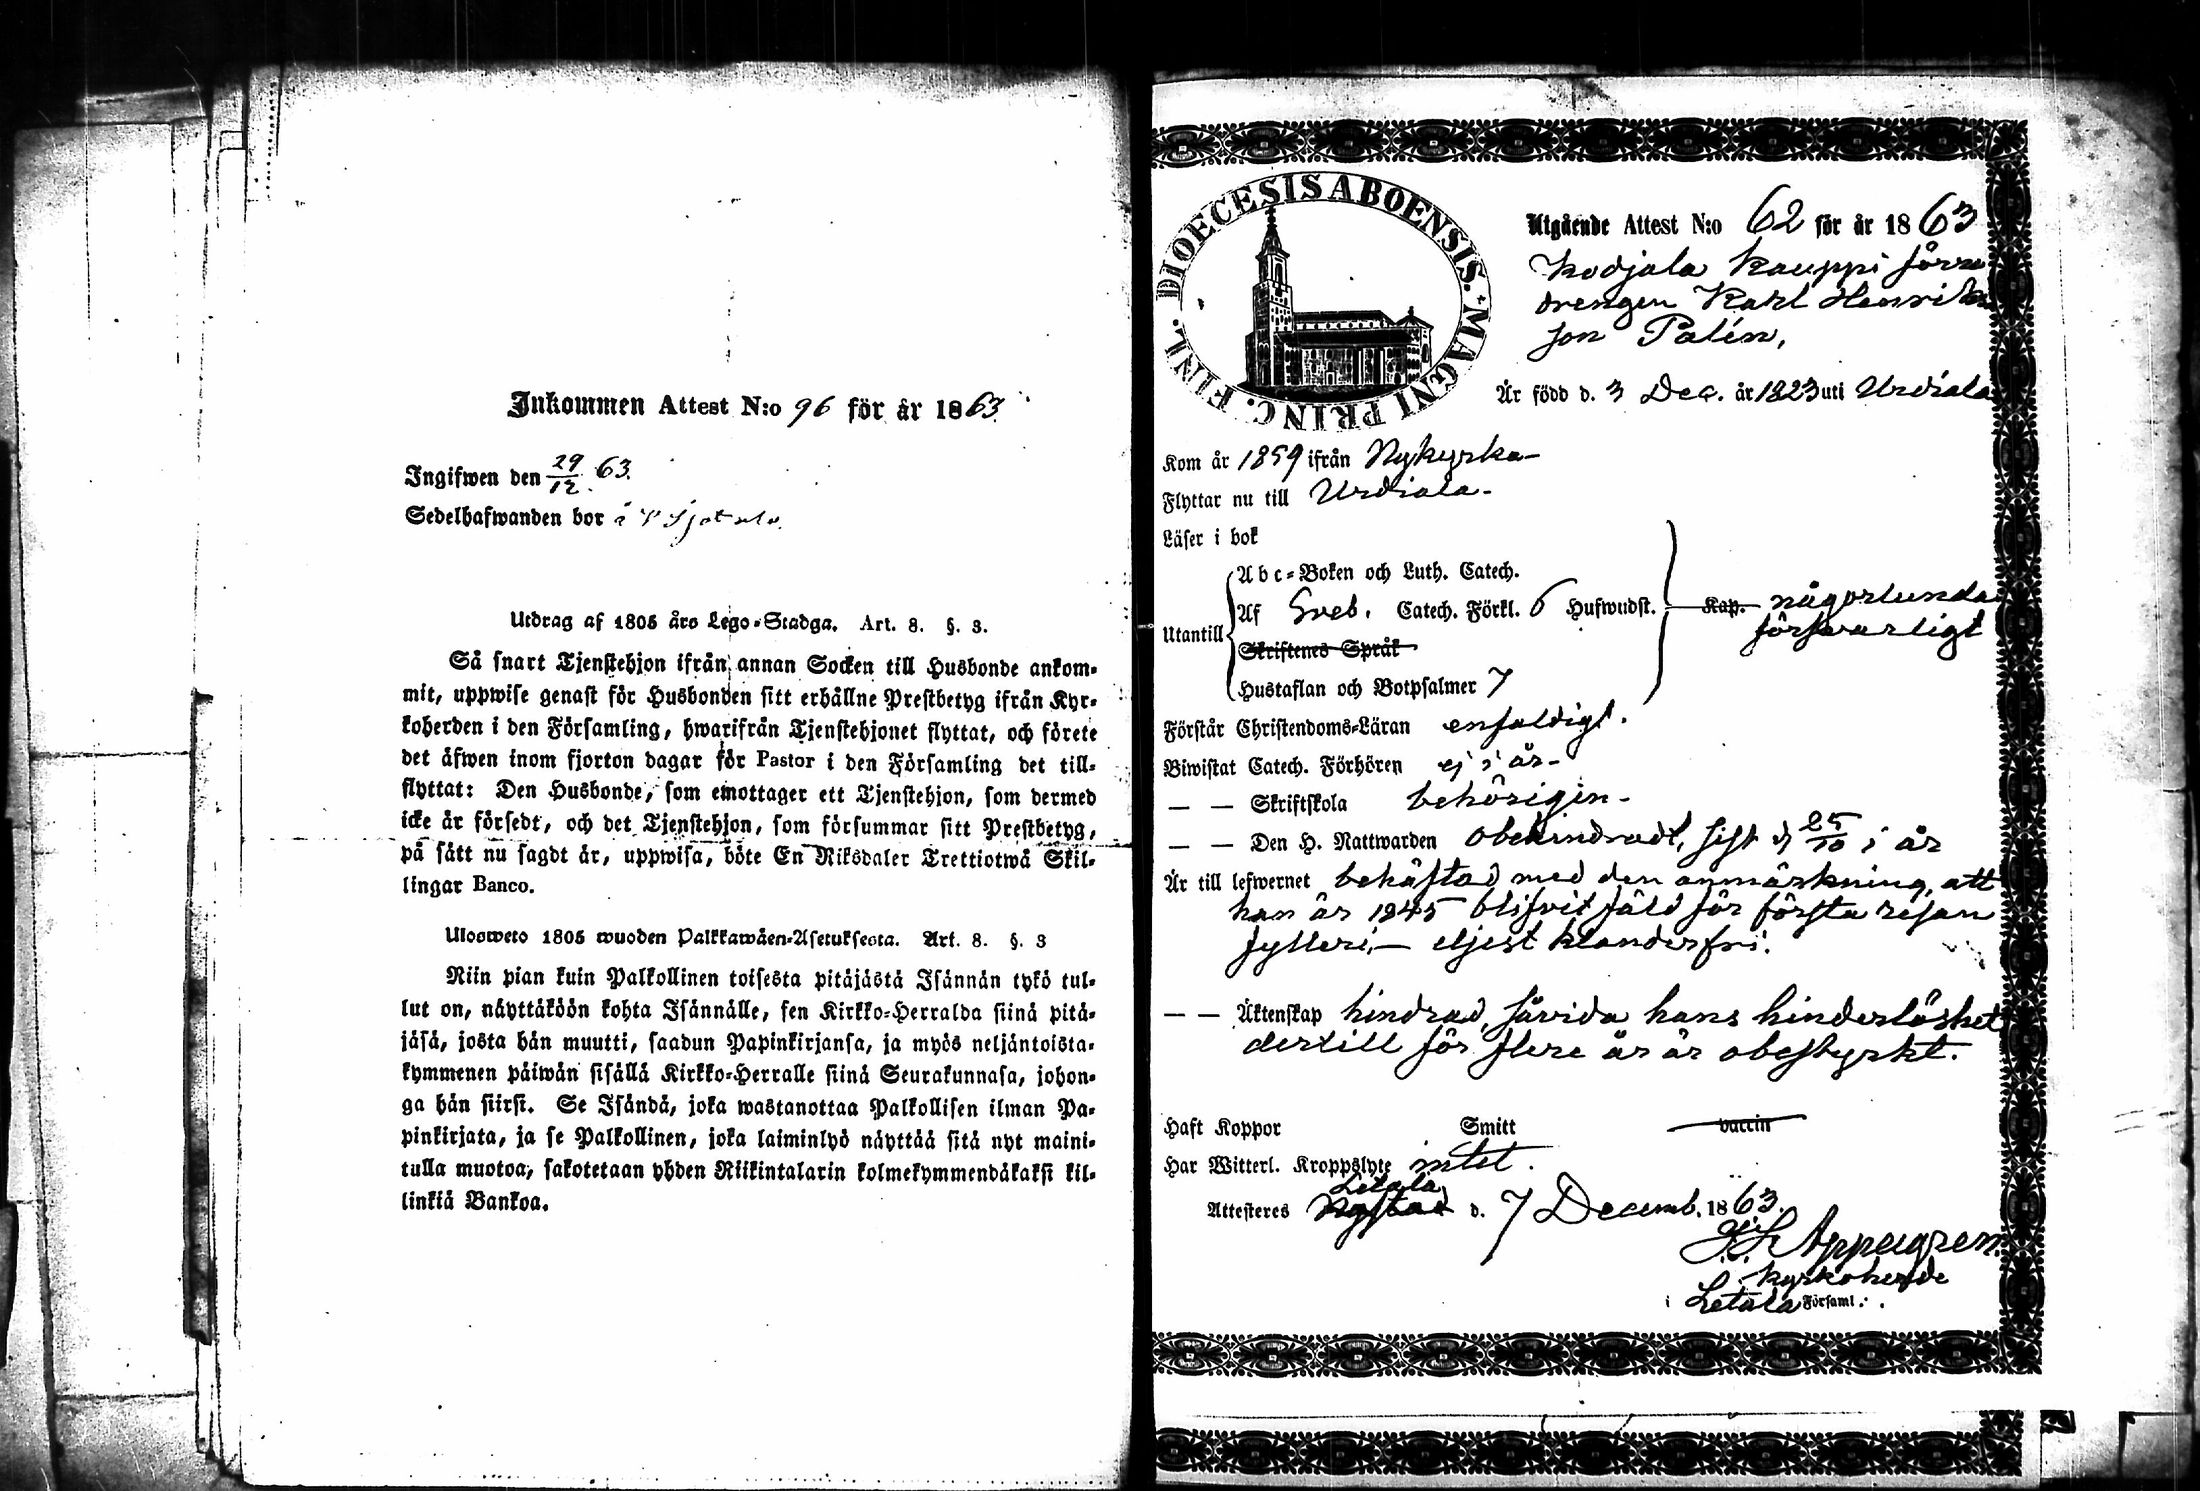 Inkommen Attest N:o 96 för år 1863.
Ingifwen den 29/12 63.
Sedelhafwanden bor å
Utdrag af 1805 års Lego-Stadga. Art. 8. §. 3.
Så snart Tjenstehjon ifrån annan Socken till Husbonde ankom-
mit, uppwise genast för Husbonden sitt erhållne Prestbetyg ifrån Kyr-
koherden i den Församling, hwarifrån Tjenstehjonet flyttat, och förete
det äfwen inom fjorton dagar för Pastor i den Församling det till-
flyttat: Den Husbonde, som emottager ett Tjenstehjon, som dermed
icke är försedt, och det Tjenstehjon, som försummar sitt Prestbetyg,
på sätt nu sagdt är, uppwisa, böte En Riksdaler Trettiotwå Skil-
lingar Banco.
Ulosweto 1805 wuoden Palkkawäen-Asetuksesta. Art. 8. §. 3
Niin pian kuin Palkollinen toisesta pitäjästä Isännän tykö tul-
lut on, näyttäköön kohta Isännälle, sen Kirkko-Herralda siinä pitä-
jäsä, josta hän muutti, saadun Papinkirjansa, ja myös neljäntoista-
kymmenen päiwän sisällä Kirkko-Herralle siinä Seurakunnasa, johon-
ga hän siirsi. Se Isändä, joka wastanottaa Palkollisen ilman Pa-
pinkirjata, ja se Palkollinen, joka laiminlyö näyttää sitä nyt maini-
tulla muotoa, sakotetaan yhden Riikintalarin kolmekymmendäkaksi kil-
linkiä Bankoa.
DIOECESIS ABOENSIS. * MAGNI PRINC. FINL.
Utgående Attest N:o 62 för år 1863
Kodjala Kauppi förra
drengen Karl Henrik
son Palén,
Är född d. 3 Dec. år 1823 uti Urdiala
Kom år 1859 ifrån Nykyrka
Flyttar nu till Urdiala
Läser i bok
Utantill
Abc-Boken och Luth. Catech.
Af Sveb. Catech. Förkl. 6 Hufwudst. Kap. någorlunda
försvarligt
Skriftenes Språk
Hustaflan och Botpsalmer 7
Förstår Christendoms-Läran enfaldigt.
Biwistat Catech. Förhören ej i år
— — Skriftskola behörigen
— — Den H. Nattwarden obehindradt, sist d 25/10 i år
Är till lefwernet behäftad med den anmärkning, att
han år 1845 blifvit fäld för första resan
fylleri,— eljest klanderfri.
— — Äktenskap hindrad, såvida hans hinderlöshet
dertill för flere år är obestyrkt.
Haft Koppor Smitt vaccin
Har Witterl. Kroppslyte intet.
Letala
Attesteres Nystad d. 7 Decemb. 1863.
Appelgren
Kyrkoherde
i Letala Församl.